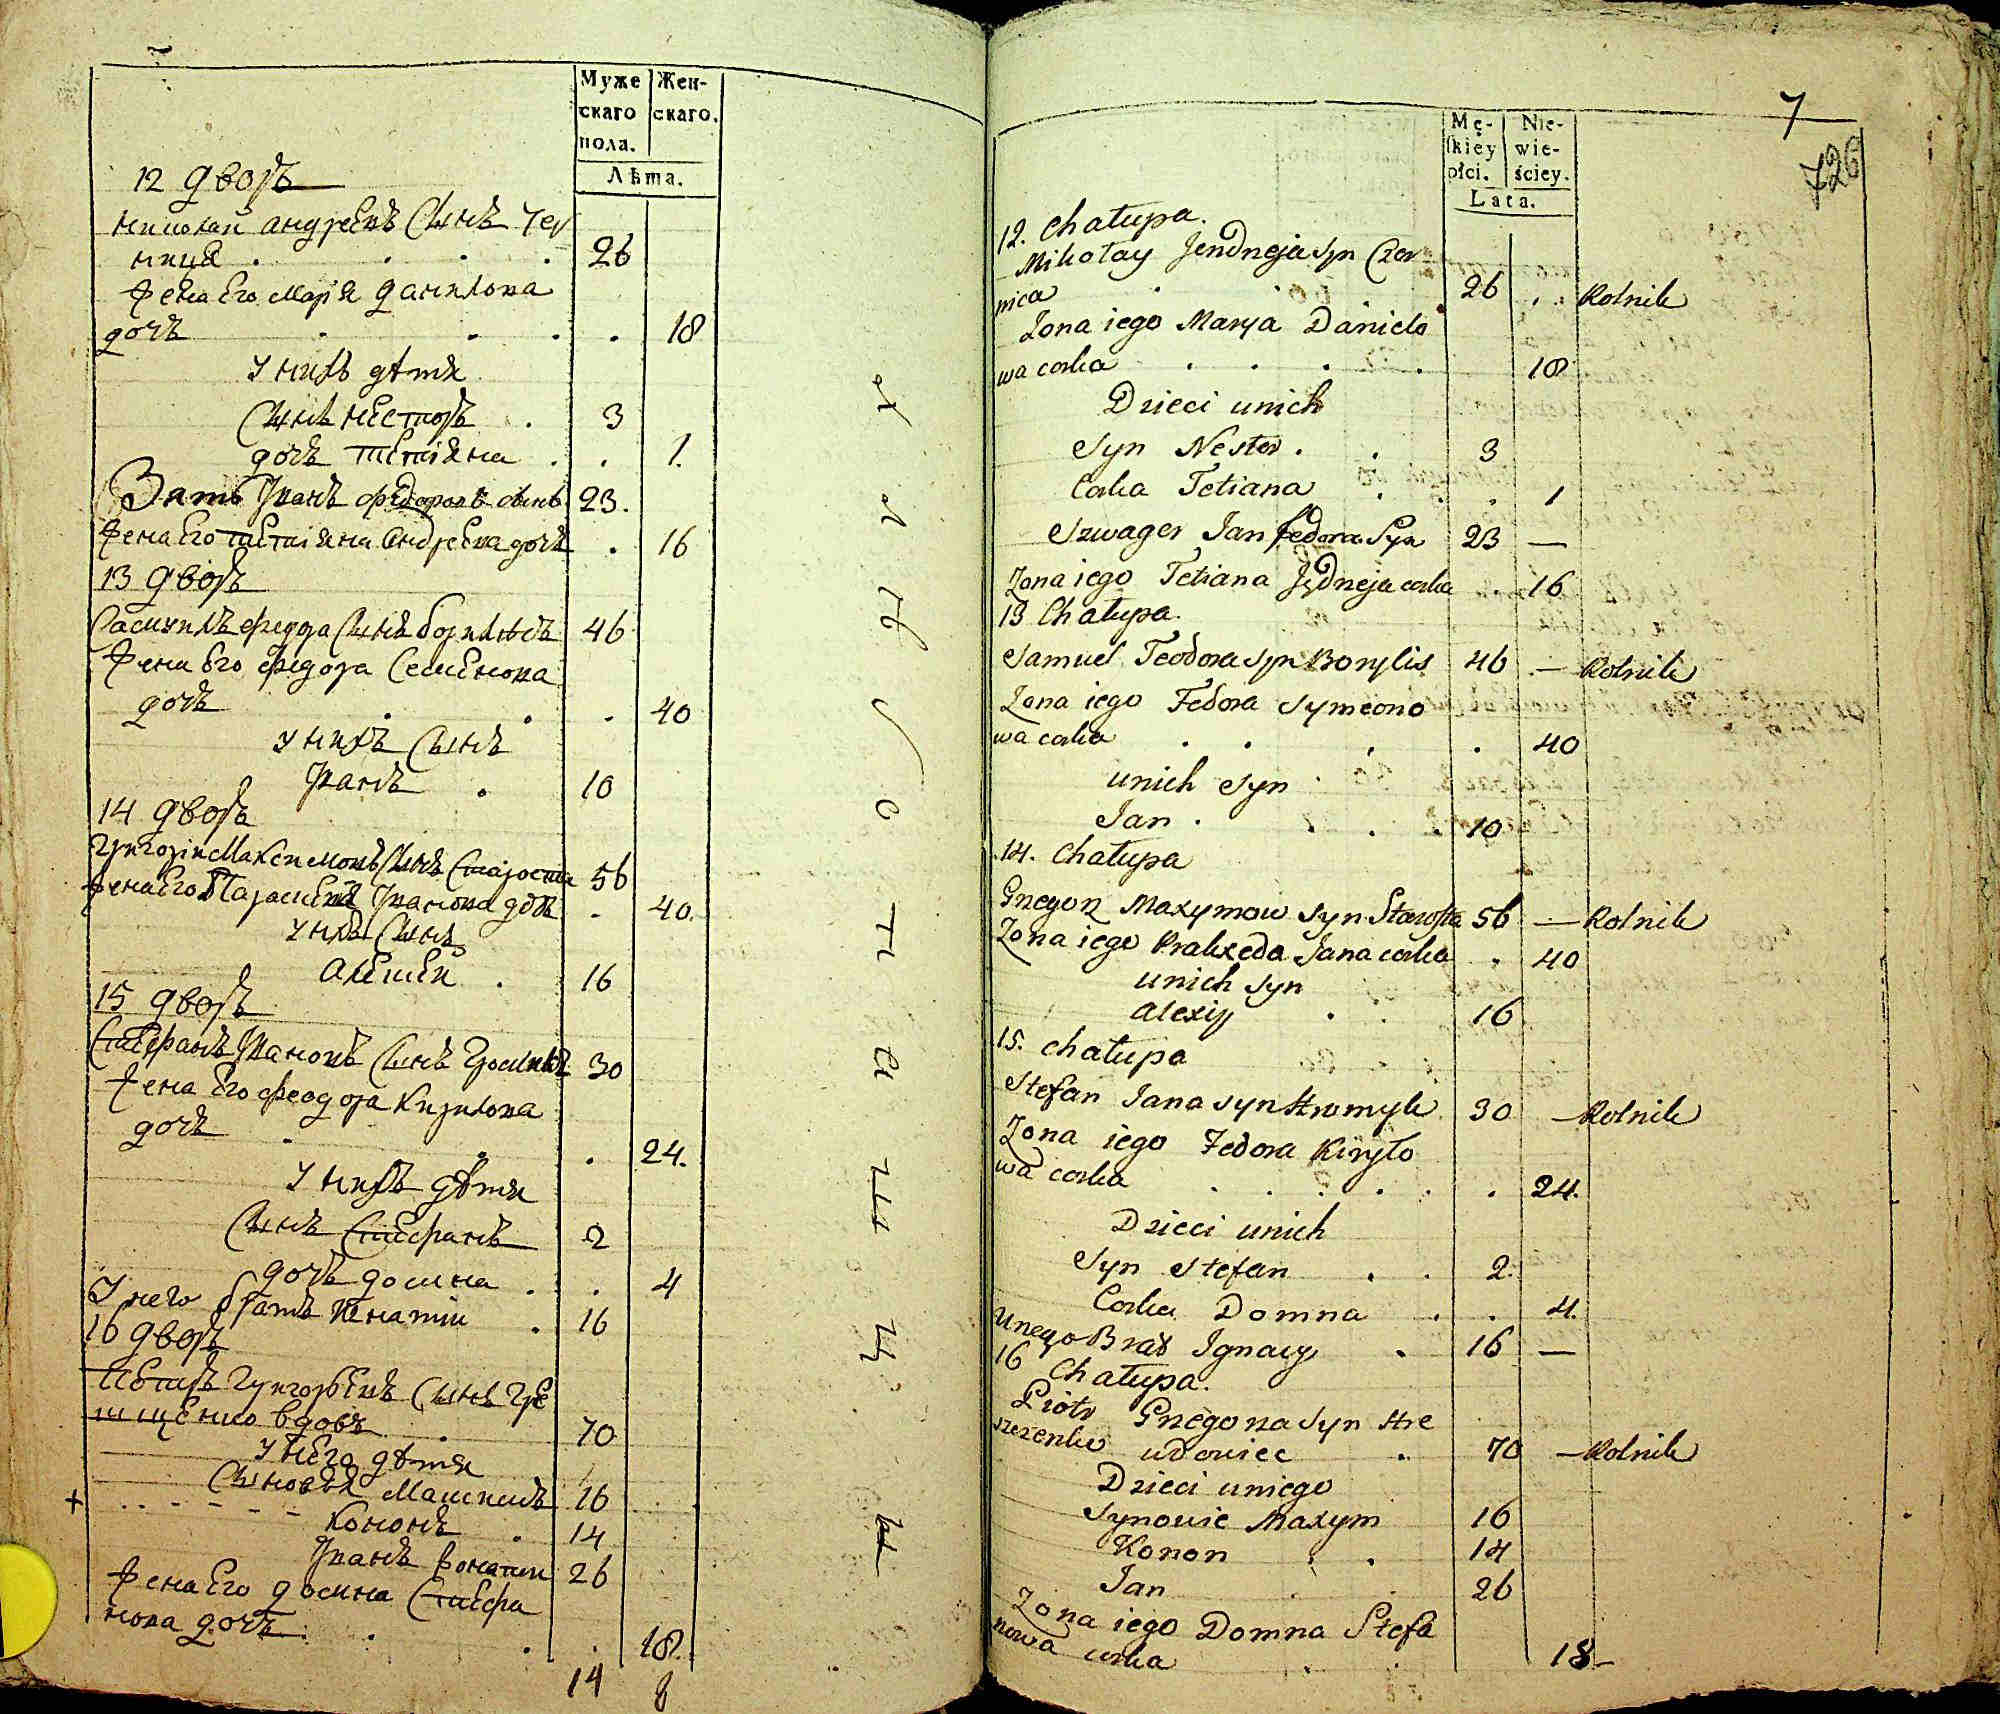 Муже
скаго
пола.
Жен-
скаго.
Лѣта.
12 дворъ
Николай андреевъ Сынъ Чер
ница . . . . 26
жена Его Марія данилова
дочъ . . . . 18
У нихъ дѣти
Сынъ Несторъ . 3
дочъ Тетіяна . . 1.
Зять Иванъ Федоровъ сынъ 23.
жена Его Тетіяна Андреева дочъ . 16
13 дворъ
Самуилъ Федора Сынъ 46
жена Его Федора Семенова
дочъ . . . 40
У нихъ Сынъ
Иванъ . 10
14 дворъ
Григорій Максимовъ Сынъ Староста 56
жена Его Параскева Иванова дочъ . 40.
У нихъ Сынъ
Алексей . 16
15 дворъ
Стефанъ Ивановъ Сынъ 30
жена Его Феодора Кирилова
дочъ . . . 24.
У нихъ дѣти
Сынъ Стефанъ 2
дочъ домна . . 4
У него братъ Игнатій . 16
16 дворъ
Петръ Григорьевъ Сынъ Гре
щенко вдовъ . 70
У него дѣти
Сыновья Максимъ 16
+ Кононъ . 14
Иванъ 26
жена Его домна Стефа
нова дочъ . . . 18.
14 8
7
726
Mę-
skiey
płci.
Nie-
wie-
ściey.
Lata.
12. Chałupa.
Mikołay Jendrzeja syn Czer
nica . . . 26 . . Rolnik
Zona iego Marya Daniело
wa corka . . . . 18
Dzieci unich
Syn Nestor . . 3
Corka Tetiana . . 1
Szwager Jan Fedora Syn 23 —
Zona iego Tetiana Jędrzeja corka . 16
13 Chałupa.
Samuel Teodora syn Borylis 46 — Rolnik
Zona iego Fedora Symeono
wa corka . . . . 40
unich Syn
Jan . . . 10
14. Chałupa
Grzegorz Maxymow syn Starosta 56 — Rolnik
Zona iego Praxeda Jana corka . 40
unich syn
Alexiy . . 16
15. Chałupa
Stefan Jana syn Hromyk 30 — Rolnik
Zona iego Fedora Kiryło
wa corka . . . . . 24.
Dzieci unich
Syn Stefan . . 2.
Corka Domna . . 4.
unego Brat Ignacy . 16 —
16 Chałupa.
Piotr Grzegorza syn Hre
szczenko wdowiec . 70 — Rolnik
Dzieci uniego
Synowie Maxym 16
Konon . . 14
Jan . 26
Zona iego Domna Stefa
nowa corka . . 18 —